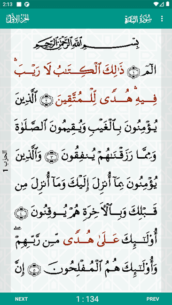 2:13
سُورَةُ البَقَرَةِ
بِسْمِ ٱللَّهِ ٱلرَّحْمَٰنِ ٱلرَّحِيمِ
الٓمٓ ١ ذَٰلِكَ ٱلْكِتَٰبُ لَا رَيْبَ ۛ
فِيهِ ۛ هُدًى لِّلْمُتَّقِينَ ٢ ٱلَّذِينَ
يُؤْمِنُونَ بِٱلْغَيْبِ وَيُقِيمُونَ ٱلصَّلَوٰةَ
وَمِمَّا رَزَقْنَٰهُمْ يُنفِقُونَ ٣ وَٱلَّذِينَ
يُؤْمِنُونَ بِمَآ أُنزِلَ إِلَيْكَ وَمَآ أُنزِلَ مِن
قَبْلِكَ وَبِٱلْءَاخِرَةِ هُمْ يُوقِنُونَ ٤
أُو۟لَٰٓئِكَ عَلَىٰ هُدًى مِّن رَّبِّهِمْ ۖ
وَأُو۟لَٰٓئِكَ هُمُ ٱلْمُفْلِحُونَ ٥ إِنَّ
الحزب 1
NEXT 1 : 134 BACK